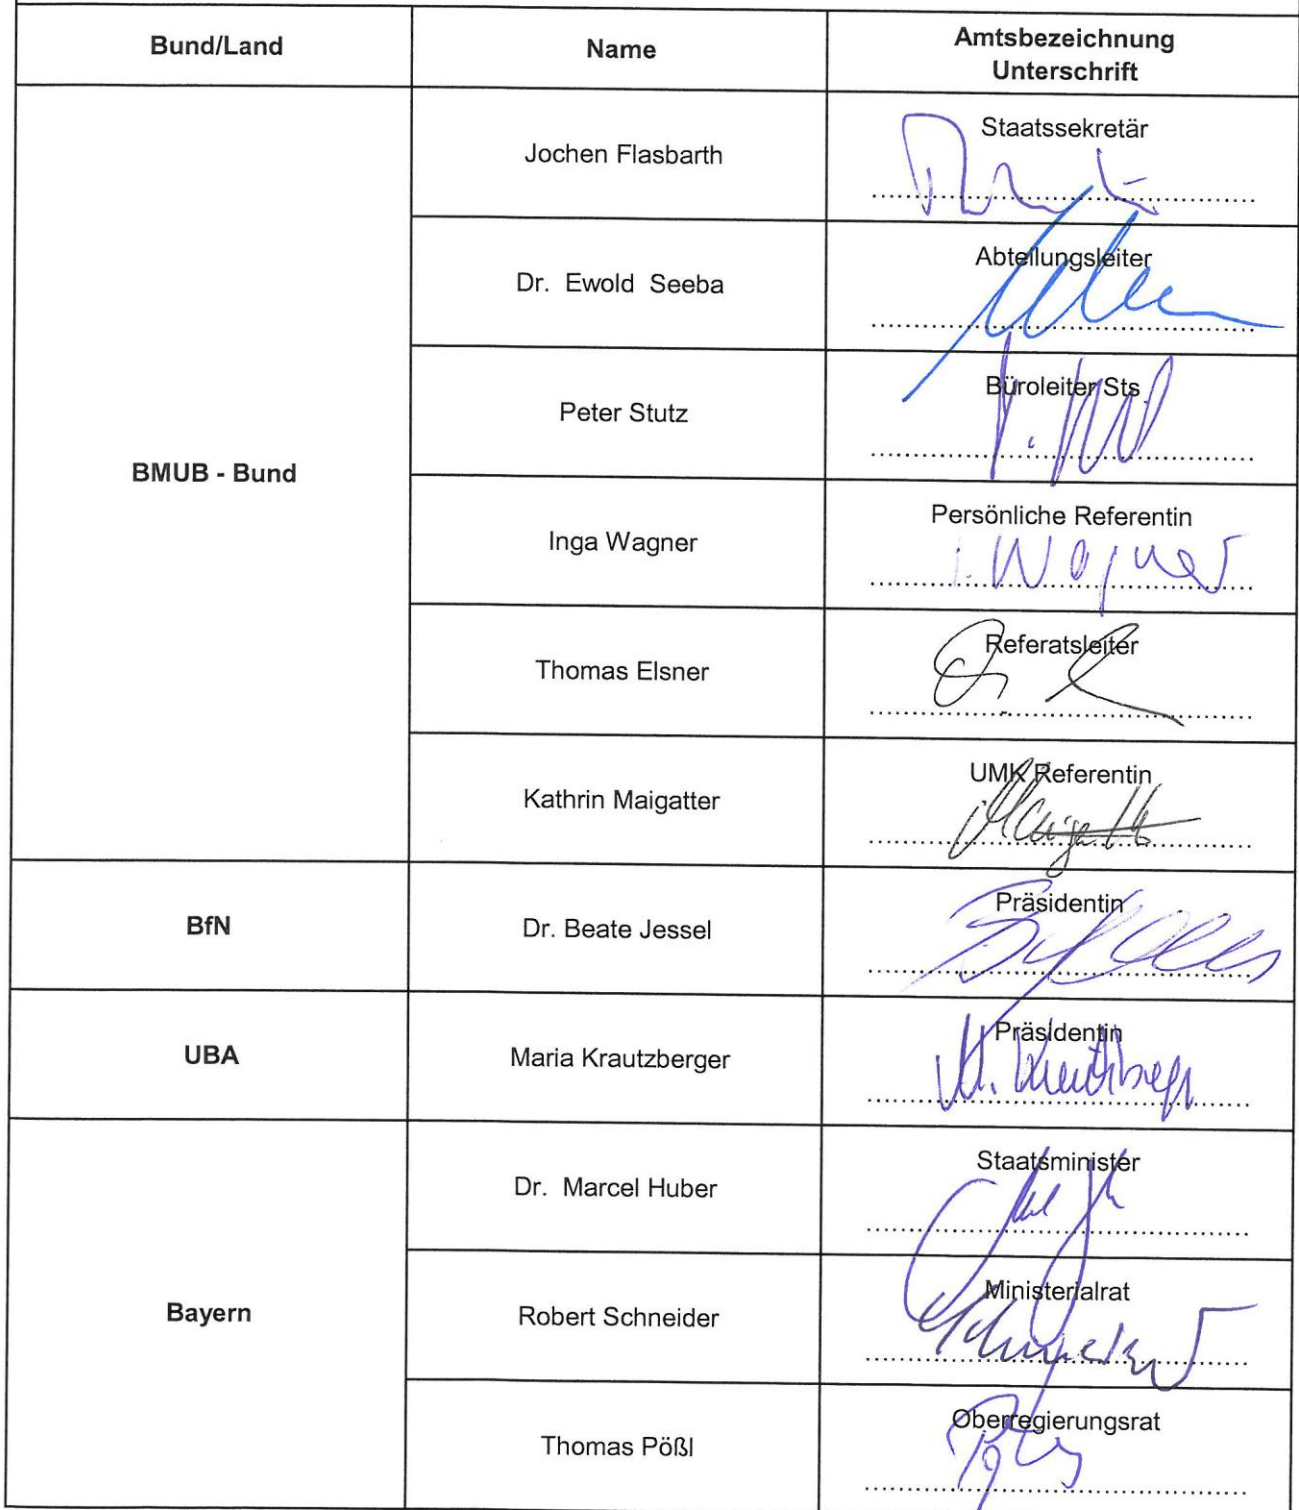 Bund/Land
Name
Amtsbezeichnung
Unterschrift
BMUB - Bund
Jochen Flasbarth
Staatssekretär
Dr. Ewold Seeba
Abteilungsleiter
Peter Stutz
Büroleiter Sts
Inga Wagner
Persönliche Referentin
I. Wagner
Thomas Elsner
Referatsleiter
Kathrin Maigatter
UMK Referentin
BfN
Dr. Beate Jessel
Präsidentin
UBA
Maria Krautzberger
Präsidentin
Bayern
Dr. Marcel Huber
Staatsminister
Robert Schneider
Ministerialrat
Thomas Pößl
Oberregierungsrat